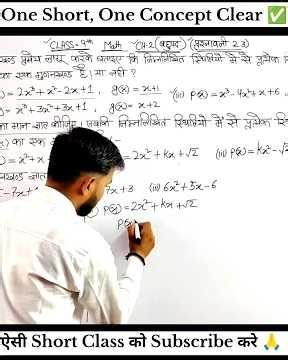 One Short, One Concept Clear ✅
CLASS-9th Math CH-2 (बहुपद) (प्रश्नावली 2.3)
खण्ड प्रमेय लागू करके बताइए कि निम्नलिखित स्थितियों में से प्रत्येक
का एक गुणनखण्ड है। या नहीं ?
= 2x³+x²-2x+1, g(x) = x+1 (iii) p(x) = x³-4x²+x+6
x³+3x²+3x+1, g(x) = x+2
का मान ज्ञात कीजिए। जबकि निम्नलिखित स्थितियों में से प्रत्येक
का एक
= x²+x = 2x²+kx+√2 (iii) p(x) = kx²-√2
-7x+ 7x+3 (iii) 6x²+5x-6
p(x) = 2x²+kx+√2
p(
ऐसी Short Class को Subscribe करे 🙏